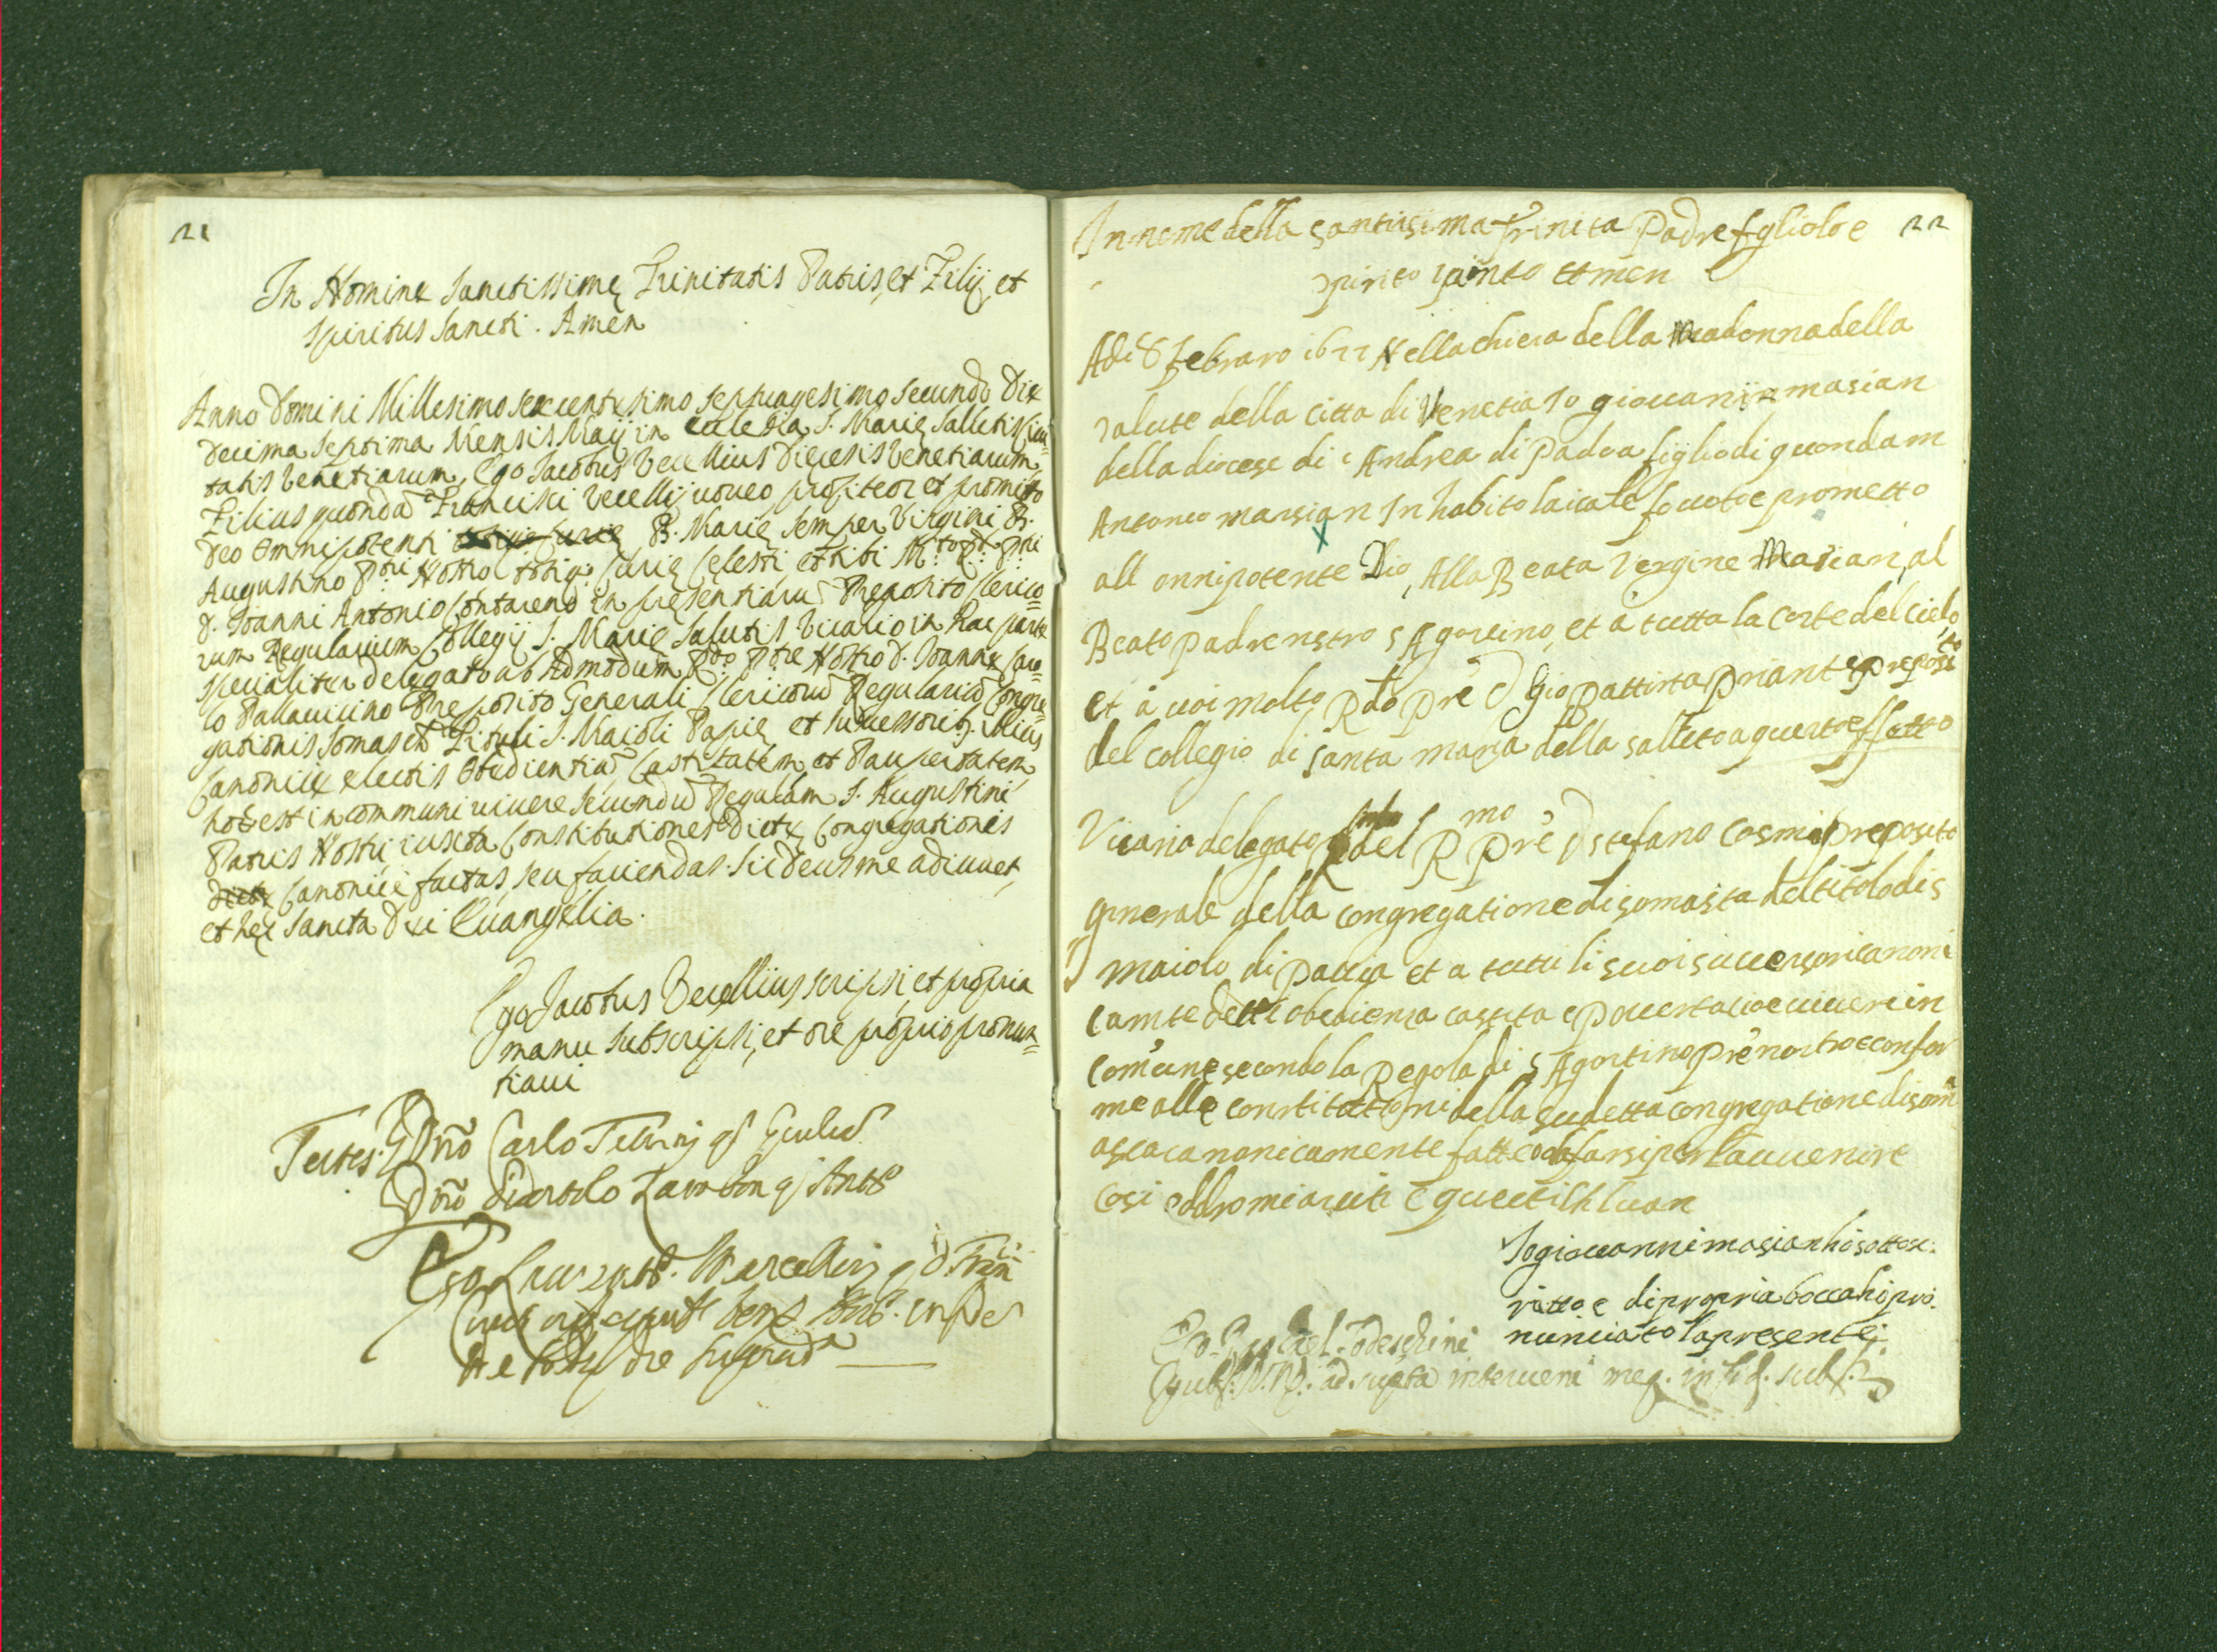 21
In Nomine Sanctissimę Trinitatis Patris, et Filij, et
Spiritus Sancti. Amen
Anno Domini Millesimo sexcentesimo septuagesimo secundo Die
decima septima Mensis Maij in Ecclesia S. Marię Sallutis Ciui=
tatis Venetiarum, Ego Jacobus Vecellius Diecesis Venetiarum
Filius quondã Francisci Vecellij uoueo profiteor et promitto
Deo Omnipotenti B. Marię semper Virgini B.
Augustino Pri Nostro totiq; Curię Celesti et tibi M.to R. Pri
D. Joanni Antonio Contareno in presentiarũ Preposito Clerico=
rum Regularium Collegij S. Marię Salutis Vicario in hac parte
specialiter delegato ab Admodum R.do Pre Nostro D. Joanne Caro=
lo Pallauicino Preposito Generali Clericorũ Regulariũ Congre=
gationis Somaschę Tituli S. Maioli Papię et successorib; illius
Canonicè electis Obedientiã Castitatem et Paupertatem
hoc est in communi uiuere secundũ Regulam S. Augustini
Patris Nostri iuxta Constitutiones Dictę Congregationis
dictę Canonicè factas, seu faciendas. sic Deus me adiuuet,
et hęc Sancta Dei Euangelia.
Ego Jacobus Vecellius scripsi, et propria
manu subscripsi, et ore proprio pronun=
tiaui
Testes. Dño Carlo
Dño Zambon q. Antº
Ego
22
In nome della santissima trinita Padre figliolo e
spirito santo Amen
Adi 8 Febraro 1677 Nella chiesa della Madonna della
salute della citta di Venetia Io giouanni masian
della diocese di s Andrea di Padoa figlio di quondam
Antonio marsian In habito laicale fo uoto e prometto
all onnipotente Dio, Alla Beata Vergine Marian, al
Beato padre nstro s Agostino, et à tutta la Corte del cielo
et à uoi molto Rdo pre D Gio Battista Priante preposito
del collegio di santa maria della salute a questo effetto
Vicario delegato dal Rmo pre D stefano Cosmi preposito
generale della congregatione di somasca del titolo di s
maiolo di pauia et a tutti li suoi successori canoni
camte detti obedienza castita e pouerta cioe uiuere in
comune secondo la Regola di s Agostino pre nostro e confor
me alle constitutioni della sudetta congregatione di som
asca canonicamente fatte o da farsi per l'auuenire
Cosi Iddio mi aiuti e questi Euan
Io giouanni masian hò sottosc:
ritto e di propria bocca hò pro:
nunciato la presente
ad supta interueni in fid. subs.